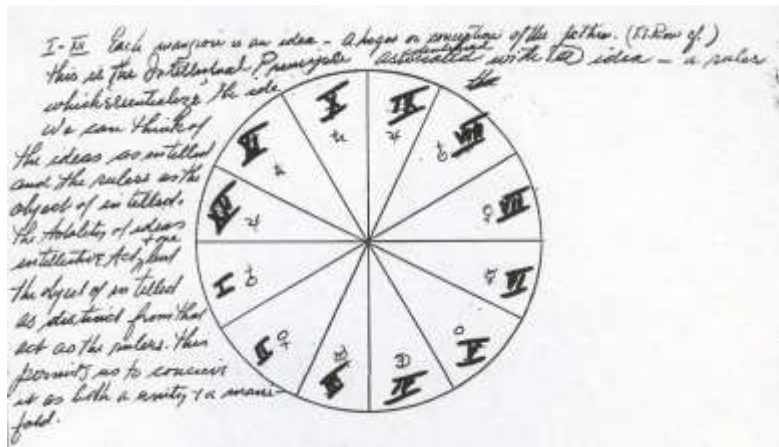 I-XII Each mansion is an idea - a logos or conception of the father. (St. Row of.)
this is the Intellectual Principle associated with the idea - a ruler
identical
the
which essentializes the idea
We can think of
the ideas as intellect
and the rulers as the
object of intellect.
The totality of ideas
+ one
intellective Act, but
the object of intellect
as distinct from that
act as the rulers. This
permits us to conceive
it as both a unity & a mani-
fold.
X ♄
IX ♃
VIII ♂
VII ♀
VI ☿
V
IV
III ☿
II ♀
I ♂
XII ♃
XI ♄